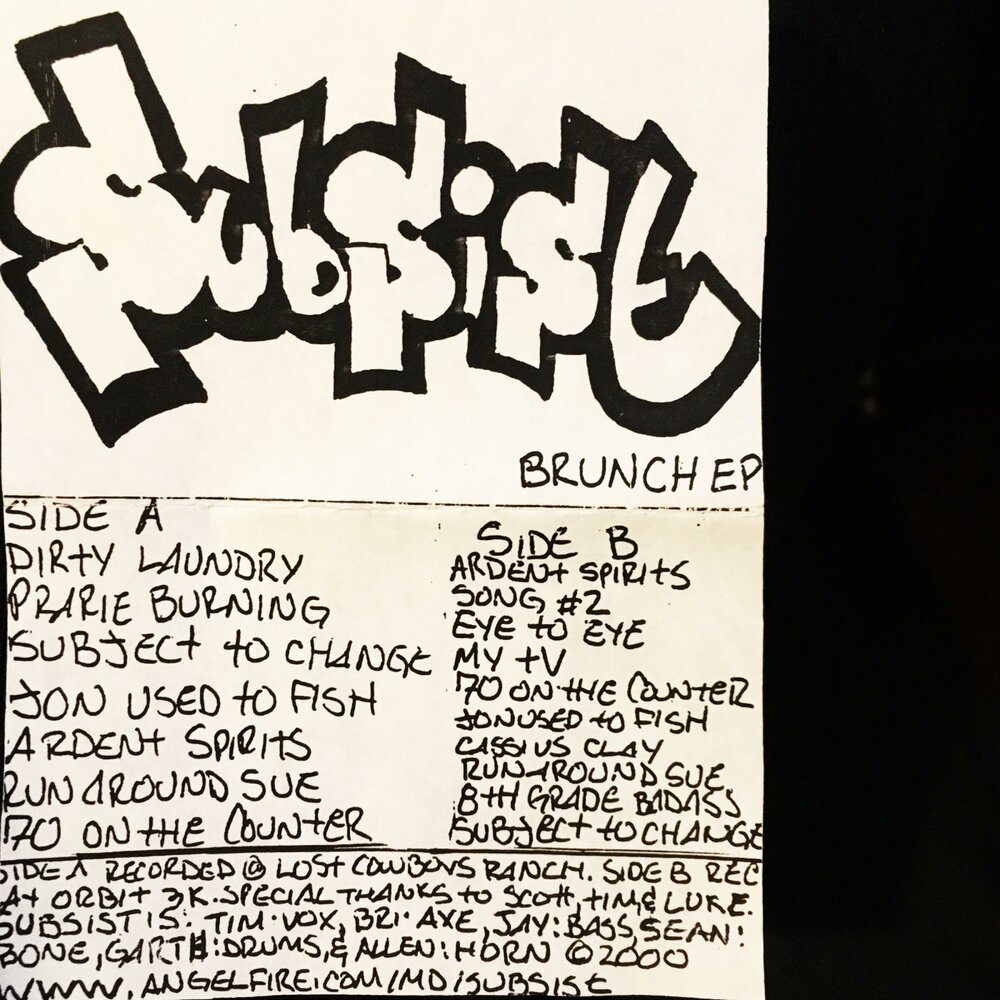 Subsist
BRUNCH EP
SIDE A
DIRTY LAUNDRY
PRARIE BURNING
SUBJECT TO CHANGE
JON USED TO FISH
ARDENT SPIRITS
RUNAROUND SUE
70 ON THE COUNTER
SIDE B
ARDENT SPIRITS
SONG #2
EYE TO EYE
MY TV
70 ON THE COUNTER
JON USED TO FISH
CASSIUS CLAY
RUNAROUND SUE
8TH GRADE BADASS
SUBJECT TO CHANGE
SIDE A RECORDED @ LOST COWBOYS RANCH. SIDE B REC
AT ORBIT 3K. SPECIAL THANKS TO SCOTT, TIM, & LUKE.
SUBSIST IS: TIM: VOX, BRI: AXE, JAY: BASS, SEAN:
BONE, GARTH: DRUMS, & ALLEN: HORN © 2000
WWW.ANGELFIRE.COM/MD/SUBSIST